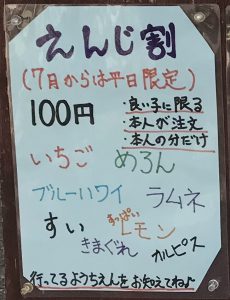 えんじ割
(7月からは平日限定)
100円
・良い子に限る
本人が注文
・本人の分だけ
いちご めろん
ブルーハワイ ラムネ
すい すっぱい レモン
きまぐれ カルピス
行ってるようちえんをお知えてね♪